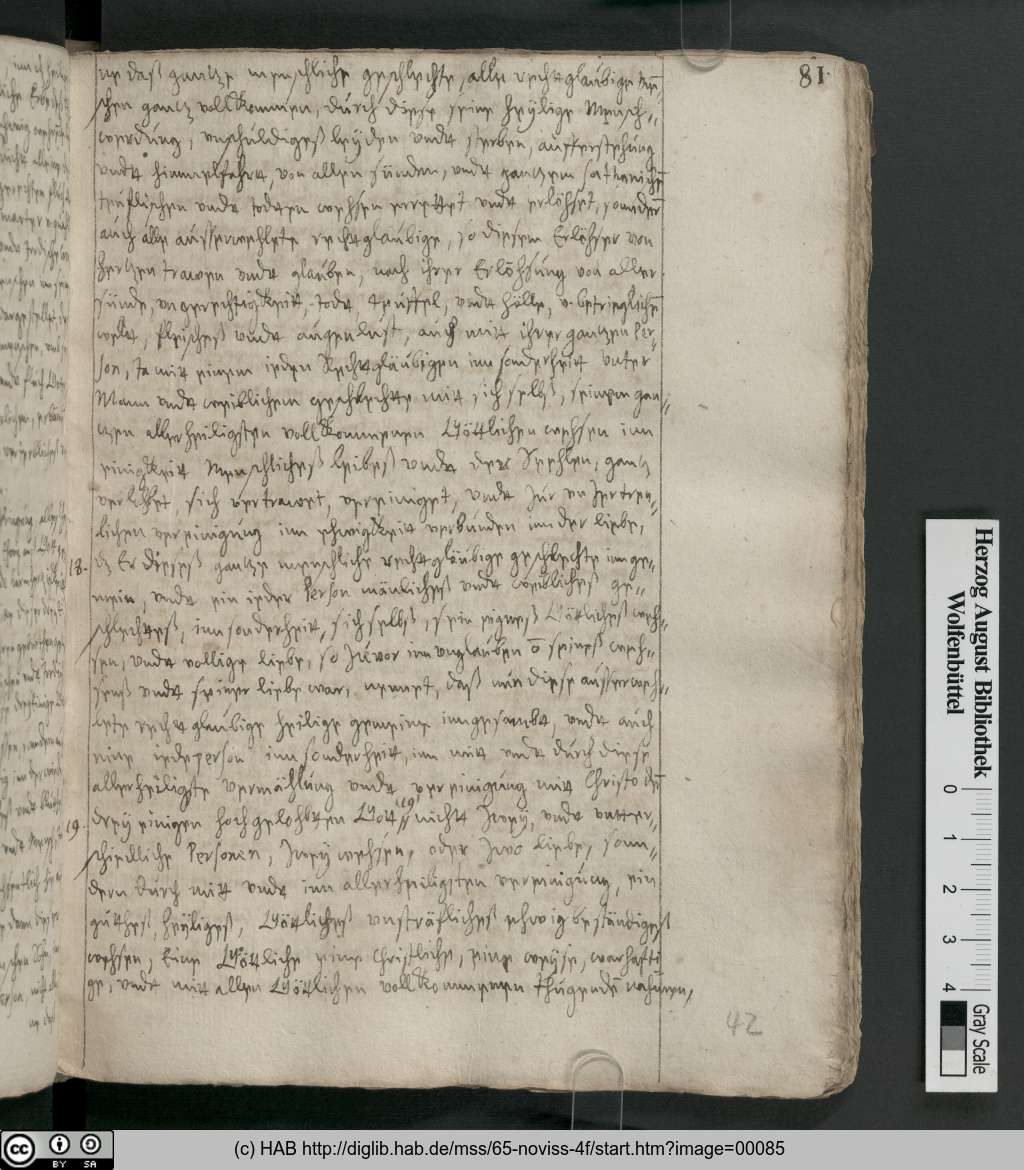 81
ne daß gantze menschliche geschlechte, alle rechtglaübige me̅-
schen gantz vollkommen, durch diese seine heÿlige Mensch-
werdung, vnschuldigeß leÿden vndt sterben, aufferstehung
vndt himmelfahrt, von allen sünden, vndt gantzem sathanische̅
teüflischen vndt todten wehsen errettet vndt erlöhset, sonder̅
auch alle ausserwehlete rechtglaübige, so diesem Erlöhser von
hertzen trawen vndt glauben, nach ihrer Erlöhsung von aller
sünde, vngerechtigkeit, todt, teüffel, vndt hölle, v. betrieglich̅
welt, fleischeß vndt augenlust, auch mit ihrer gantzen Per-
son, ja mit einem ieden Rechtgläubigen im sonderheit vnter
Mann vndt weiblichem geschlechte mit sich selbß, seinem gan-
tzen allerheiligsten vollkommenen Göttlichen wehsen inn
einigkeit Menschlicheß leibeß vndt der Seehlen, gantz
verlobet, sich vertrawet, vereiniget, vndt zur vnzertren-
lichen vereinigung inn ehwigkeit verbunden inn der liebe,
18. dz Er dieseß gantze menschliche rechtgläubige geschlechte inn ge-
mein, vndt ein ieder Person mänlicheß vndt weiblicheß ge-
schlechteß, inn sonderheit, sich selbß, sein eigeneß Göttlicheß weh-
sen, vndt volliger liebe, so zuvor im vnglauben o̅ seineß weh-
senß vndt seiner liebe war, nennet, daß nun diese ausserweh-
lete rechtglaubige heilige gemeine inn gesambt, vndt auch
eine iede person inn sonderheit, inn mit vndt durch diese
allerheiligste vermählung vndt vereinigung mit Christo de̅
19. dreÿ einigen hochgelobten Gott nicht zweÿ, vndt vnter-
schiedliche Personen, zweÿ wehsen, oder zwo liebe, son-
dern durch mit vndt inn allerheiligsten vereinigung, ein
guttheß, heÿligeß, Göttlicheß vnsträflicheß ehwig beständigeß
wehsen, Eine Göttliche eine Christliche, eine weÿse, warhafti
ge, vndt mit allen Göttlichen vollkommenen thugende nahmen,
42
Herzog August Bibliothek
Wolfenbüttel
0 1 2 3 4
Gray Scale
cc BY SA
(c) HAB http://diglib.hab.de/mss/65-noviss-4f/start.htm?image=00085